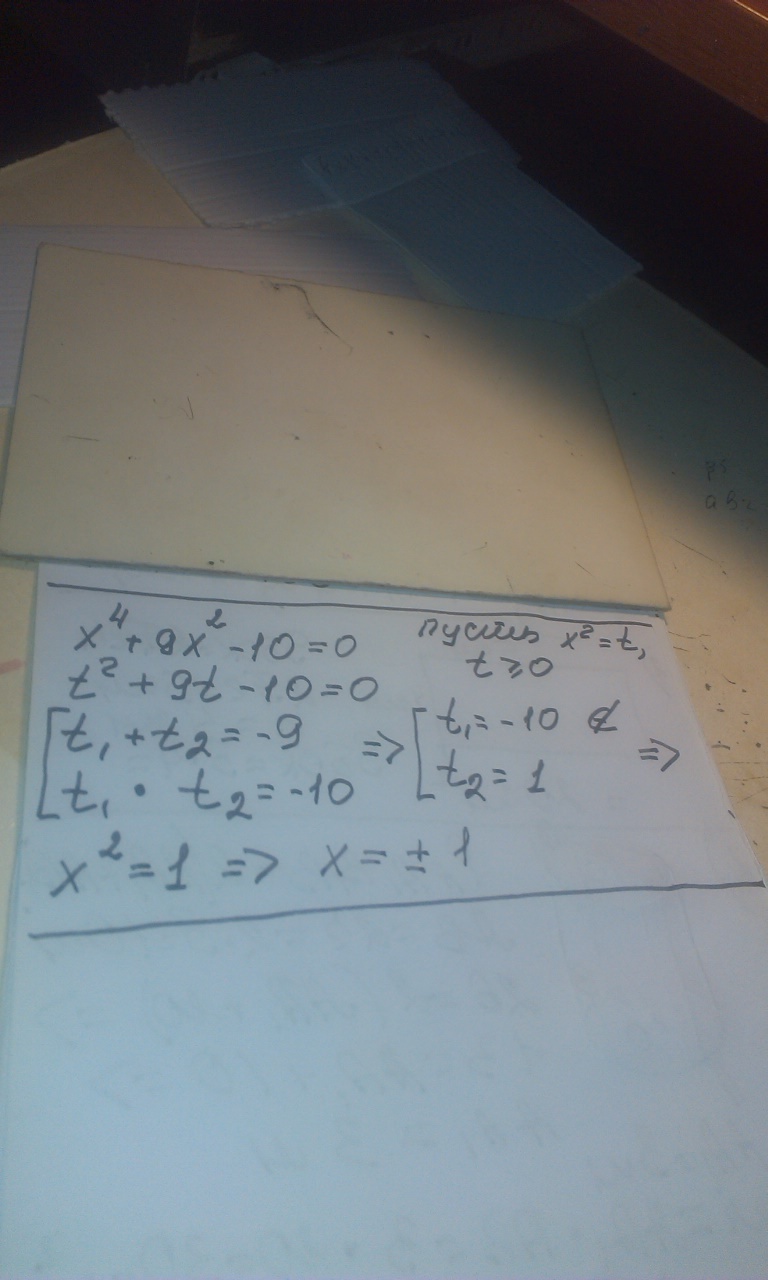 x⁴ + 9x² - 10 = 0 пусть x² = t,
t ≥ 0
t² + 9t - 10 = 0
[ t₁ + t₂ = -9 => [ t₁ = -10 ∉ =>
t₁ · t₂ = -10 t₂ = 1
x² = 1 => x = ± 1